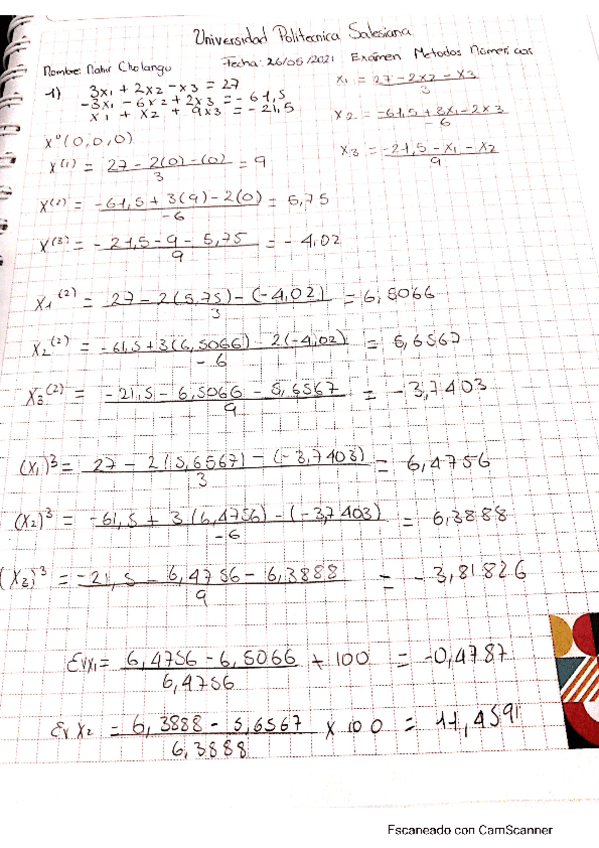 Universidad Politecnica Salesiana
Nombre: Nahir Cholango Fecha: 26/05/2021 Exámen Metodos Numericos
1) 3x1 + 2x2 - x3 = 27
-3x1 - 6x2 + 2x3 = -61,5
x1 + x2 + 9x3 = -21,5
x1 = 27 - 2x2 - x3 / 3
x2 = -61,5 + 3x1 - 2x3 / -6
x3 = -21,5 - x1 - x2 / 9
x°(0,0,0)
x(1) = 27 - 2(0) - (0) / 3 = 9
x(2) = -61,5 + 3(9) - 2(0) / -6 = 5,75
x(3) = - 21,5 - 9 - 5,75 / 9 = - 4,02
x1(2) = 27 - 2(5,75) - (-4,02) / 3 = 6,5066
x2(2) = -61,5 + 3(6,5066) - 2(-4,02) / -6 = 5,6567
x3(2) = -21,5 - 6,5066 - 5,6567 / 9 = -3,7403
(x1)3 = 27 - 2(5,6567) - (-3,7403) / 3 = 6,4756
(x2)3 = -61,5 + 3(6,4756) - (-3,7403) / -6 = 6,3888
(x3)3 = -21,5 - 6,4756 - 6,3888 / 9 = -3,81826
Evx1 = 6,4756 - 6,5066 / 6,4756 + 100 = -0,4787
Ev x2 = 6,3888 - 5,6567 / 6,3888 x 100 = 11,4591
Escaneado con CamScanner